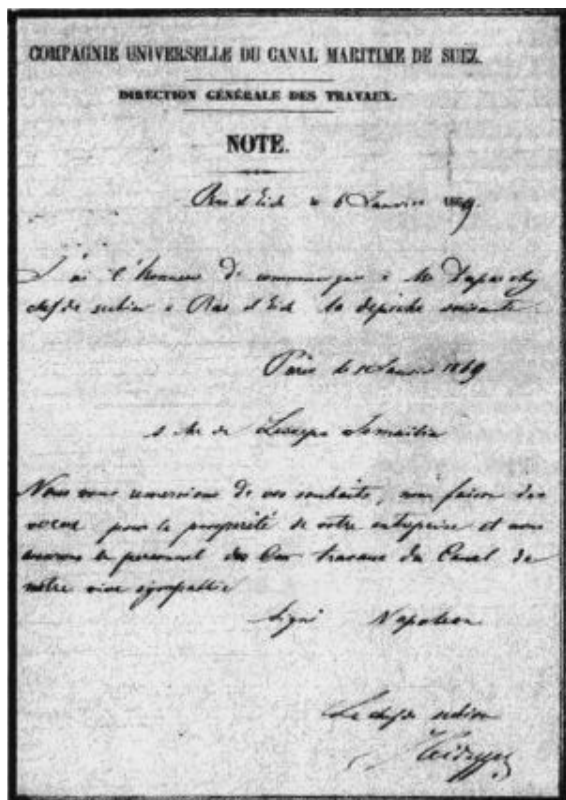 COMPAGNIE UNIVERSELLE DU CANAL MARITIME DE SUEZ.
DIRECTION GÉNÉRALE DES TRAVAUX.
NOTE.
Ras el Eich le 6 Janvier 1869
J'ai l'honneur de communiquer à Mr
chef de section à Ras el Eich la dépêche suivante
Paris le Janvier 1869
à Mr de Lesseps Ismaïlia
Nous vous remercions de vos souhaits, nous faisons des
vœux pour la prospérité de votre entreprise et nous
assurons le personnel des travaux du Canal de
notre vive sympathie
Signé Napoleon
Le chef de section